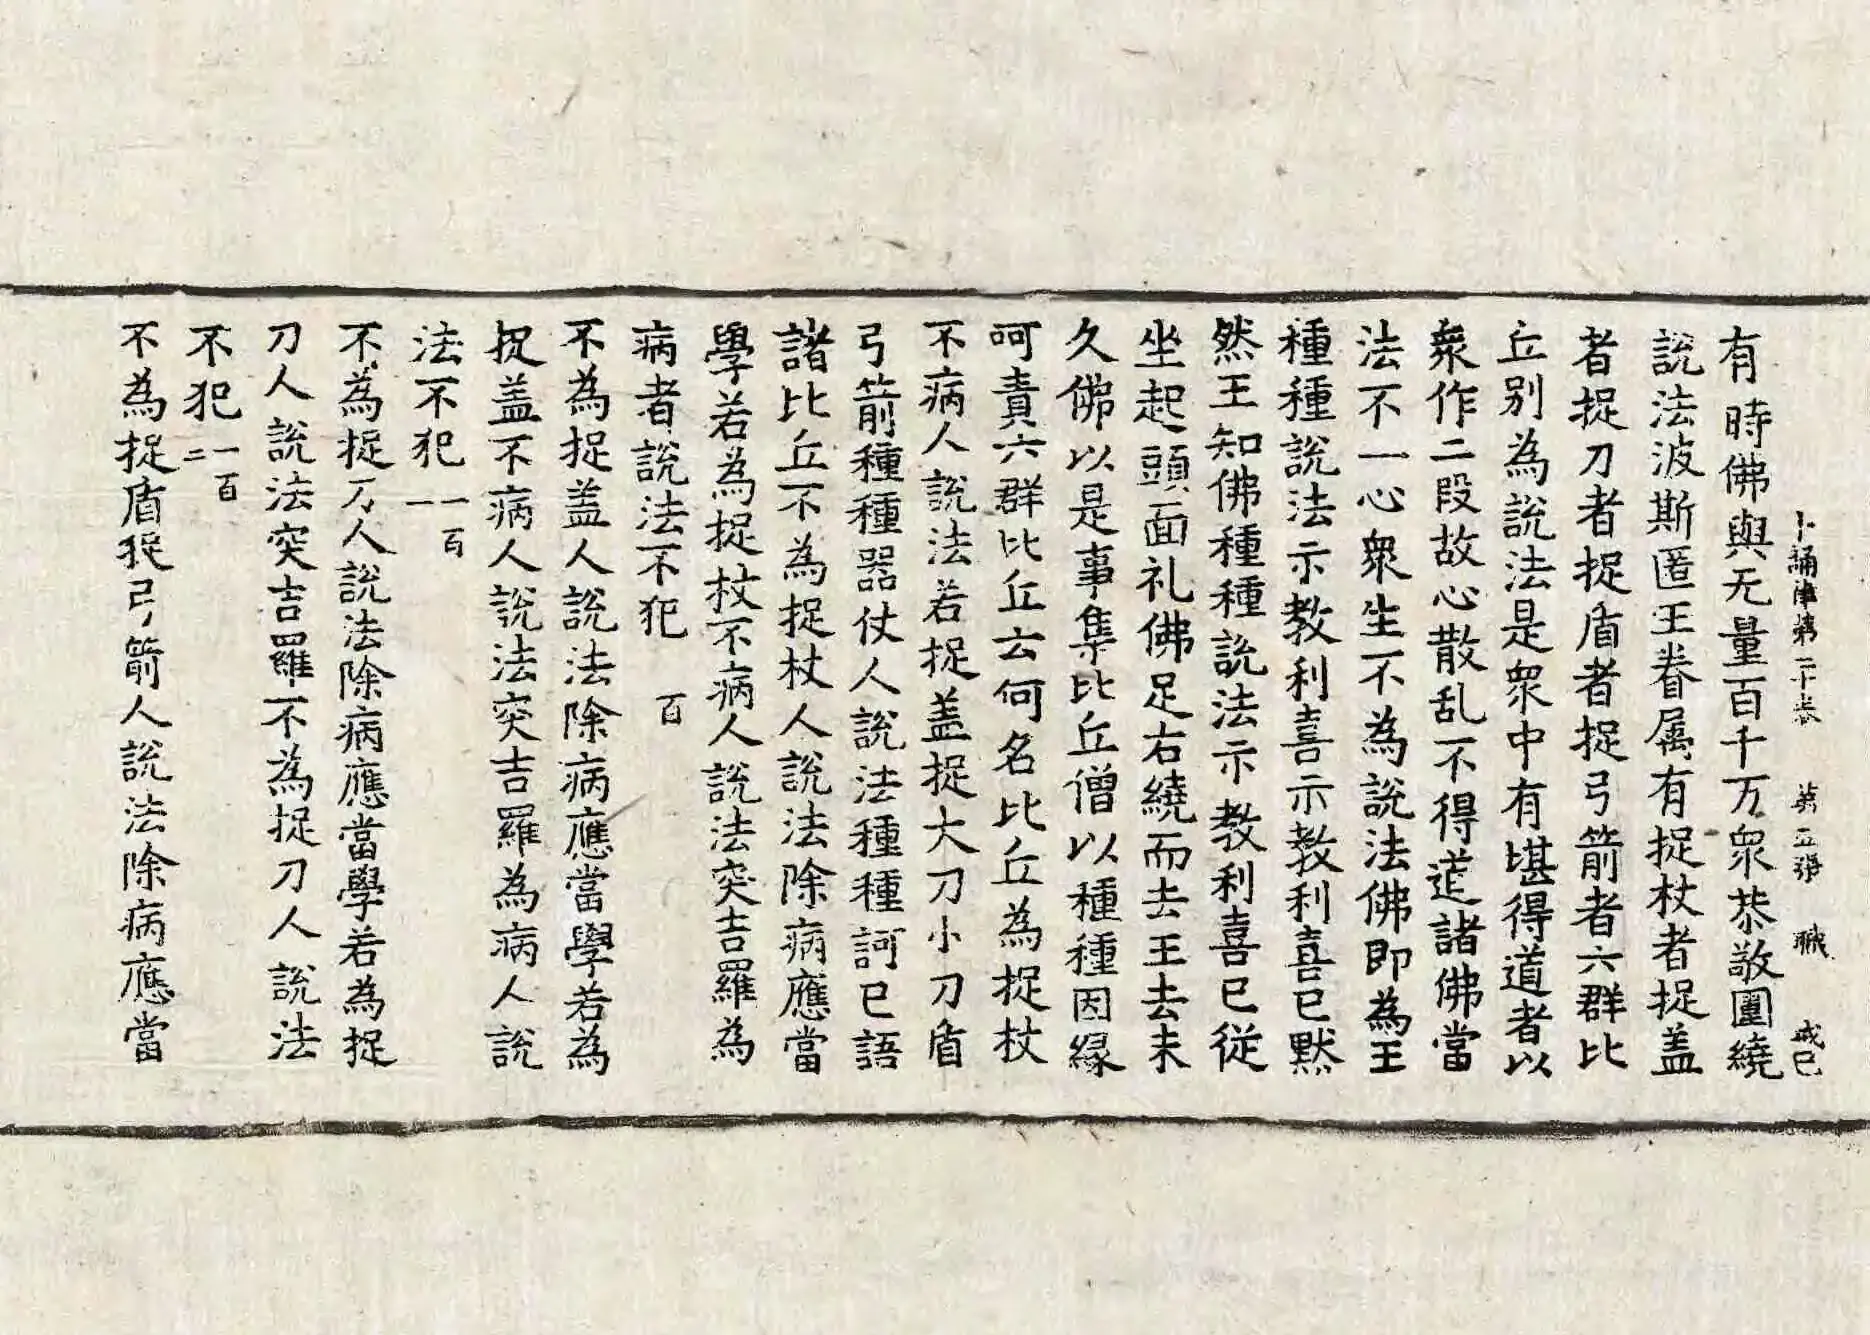 十誦律第二十卷 第五張 職 戒巳
有時佛與无量百千万衆恭敬圍繞
說法波斯匿王眷属有捉杖者捉盖
者捉刀者捉盾者捉弓箭者六群比
丘別為說法是衆中有堪得道者以
衆作二段故心散乱不得道諸佛當
法不一心衆生不為說法佛即為王
種種說法示教利喜示教利喜已默
然王知佛種種說法示教利喜已従
坐起頭面礼佛足右繞而去王去未
久佛以是事集比丘僧以種種因緣
呵責六群比丘云何名比丘為捉杖
不病人說法若捉盖捉大刀小刀盾
弓箭種種器仗人說法種種訶已語
諸比丘不為捉杖人說法除病應當
學若為捉杖不病人說法突吉羅為
病者說法不犯 百
不為捉盖人說法除病應當學若為
捉盖不病人說法突吉羅為病人說
法不犯 一百一
不為捉刀人說法除病應當學若為捉
刀人說法突吉羅不為捉刀人說法
不犯 一百二
不為捉盾捉弓箭人說法除病應當